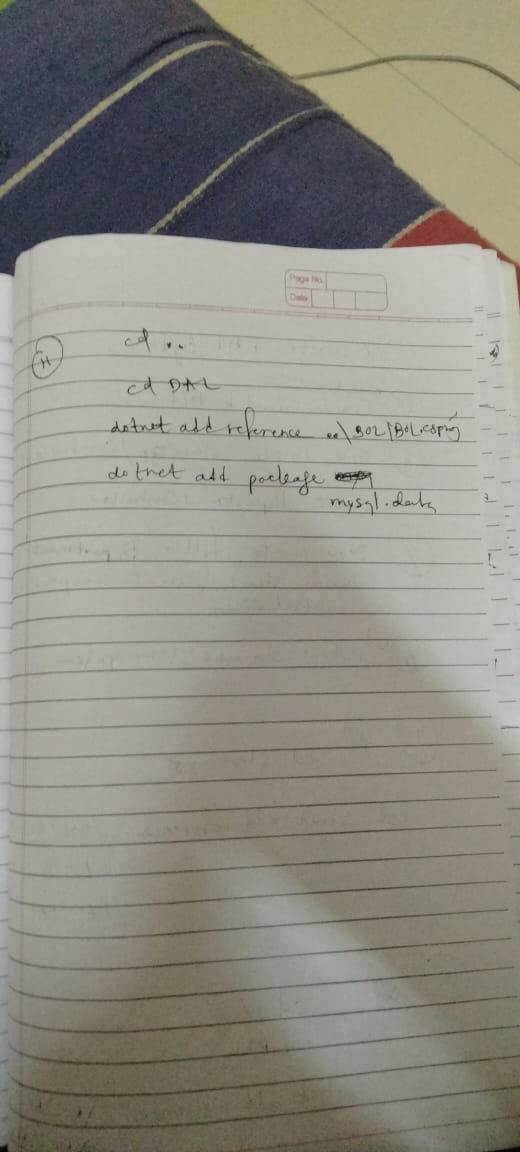 Page No.
Date
cd ..
cd DAL
dotnet add reference ..\BOL\BOL.csproj
dotnet add package
mysql.data